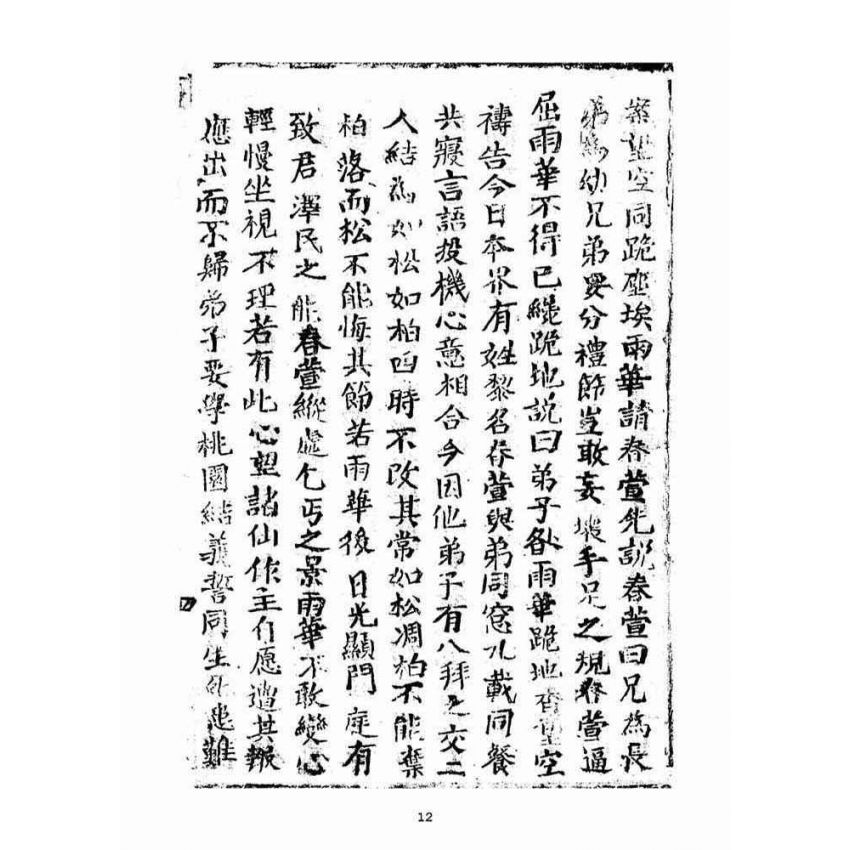 案望空同跪塵埃雨華請春萱先説春萱曰兄爲長
弟爲幼兄弟要分禮節豈敢妄壞手足之規春萱逼
屈雨華不得已纔跪地説曰弟子郤雨華跪地杳望空
禱告今日本界有姓黎名春萱與弟同窓九載同餐
共寢言語投機心意相合今因他弟子有八拜之交二
人結爲如松如柏四時不改其常如松凋柏不能棄
柏落而松不能悔其節若雨華後日光顯門庭有
致君澤民之能春萱縱處乞丐之景雨華不敢變心
輕慢坐視不理若有此心望諸仙作主自愿遭其報
應出而不歸弟子要學桃園結義誓同生死患難
12